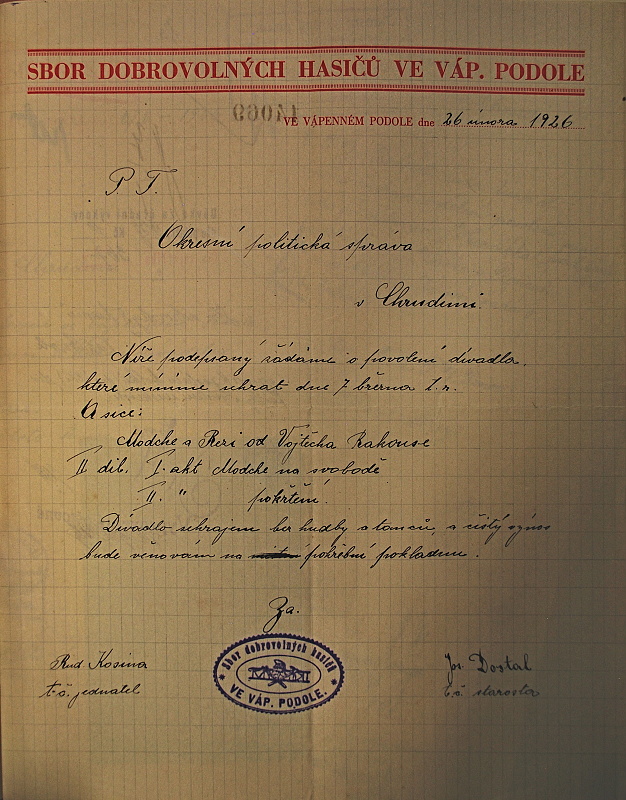 SBOR DOBROVOLNÝCH HASIČŮ VE VÁP. PODOLE
14069
VE VÁPENNÉM PODOLE dne 26 února 1926
P. T.
Okresní politická správa
v Chrudimi.
Níže podepsaný žádáme o povolení divadla,
které míníme sehrat dne 7 března t. r.
A sice:
Modche a Rezi od Vojtěcha Rakouse
II. díl. I. akt Modche na svobodě
II. " pokřtění.
Divadlo sehrajem bez hudby a tanců, a čistý výnos
bude věnován na pohřební pokladnu.
Za.
Rud Kosina
t. č. jednatel
Sbor dobrovolných hasičů
VE VÁP. PODOLE.
Jos. Dostal
t. č. starosta